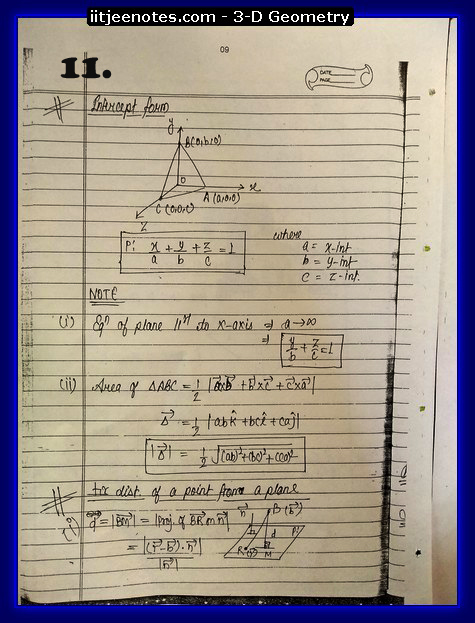 iitjeenotes.com - 3-D Geometry
09
11.
DATE
PAGE
Intercept form
y
B(0,b,0)
O
x
A (a,0,0)
C (0,0,c)
Z
P: x/a + y/b + z/c = 1
where
a = x-int
b = y-int
c = z-int.
NOTE
(i) Eqn of plane 11el to x-axis ⇒ a→∞
⇒ y/b + z/c = 1
(ii) Area of ΔABC = 1/2 |a⃗×b⃗ + b⃗×c⃗ + c⃗×a⃗|
Δ⃗ = 1/2 |ab k̂ + bc î + ca ĵ|
|Δ⃗| = 1/2 √(ab)²+(bc)²+(ca)²
dist. of a point from a plane
= |BM⃗| = |Proj. of BR⃗ on n⃗|
= |(r⃗-b⃗)·n⃗| / |n⃗|
n⃗
B (b⃗)
d
P
R (r⃗)
M